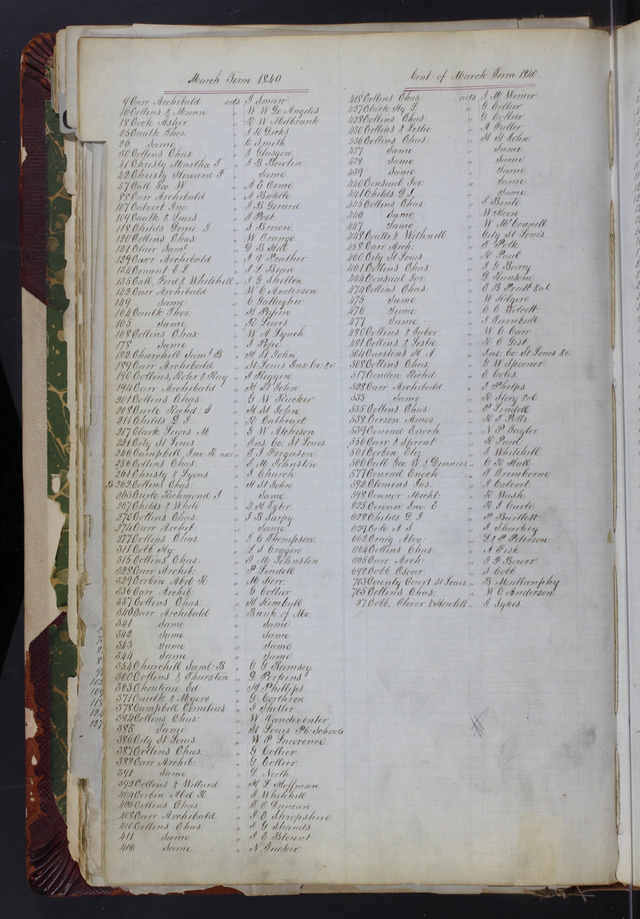 March Term 1840
9 Carr Archibald ads J Smarr
16 Collins & Munn " W W De Angelis
18 Cook Asher " R W Milbrank
25 Caulk Thos. " J R Dicks
26 Same " C Smith
30 Collins Chas. " J Glasgow
41 Christy Martha T " J B Bowlin
42 Christy Howard F " Same
57 Call Geo W " A E Orme
88 Carr Archibald " A Bedelle
107 Calvert Jno. " J B Gerard
109 Caulk & Lewis " J Post
118 Childs Dani. J " S Berrien
120 Collins Chas. " W Orange
121 Clair Saml. " G B Hill
129 Carr Archibald " A V Prather
134 Conant E L " J L Bean
135 Call, Ford & Whitehill " J G Shelton
142 Carr Archibald " W C Anderson
149 Same " C Gallagher
164 Caulk Thos. " M Pepin
165 Same " H Lewis
168 Collins Chas. " W A Lynch
178 Same " J Pipe
182 Churchill Saml. B " H St John
189 Carr Archibald " St Louis Ins. Co. &c
191 Collins, Kehr & Hoy " J Riggin
194 Carr Archibald " H St John
201 Collins Chas. " G W Rucker
208 Curle Richd. J " H St John
211 Childs D J " R Cathcart
217 Clark Lewis M " S W Acheson
221 City St Louis " Ins. Co. St Louis
246 Campbell Jno. R " J J Ferguson
256 Collins Chas " E M Johnston
261 Christy & Lyons " J Church
262 Collins Chas. " H St John
263 Curle Richmond J " Same
267 Childs & White " L M Tyler
270 Collins Chas. " J B Sarpy
274 Carr Archib. " Same
277 Collins Chas. " J C Thompson
311 Cobb Hy. " L S Cragin
315 Collins Chas: " E M Johnston
328 Carr Archib: " P Lindell
329 Corbin Abel R " M Steer
336 Carr Archib: " G Collier
337 Collins Chas: " H Kimball
340 Carr Archibald " Bank of Mo:
341 Same " Same
342 Same " Same
343 Same " Same
344 Same " Same
354 Churchill Saml: B " C G Ramsey
360 Collins & Thurston " D Perkins
365 Choutian Ed: " H Phillips
371 Caulk & Myers " G Corthron
378 Campbell Cornelius " J Spiller
384 Collins Chas: " W Vandeventer
385 Same " St Louis Pc Schools
386 City St Louis " W P Lawrence
387 Collins Chas: " G Collier
388 Carr Archib: " G Collier
391 Same " G North
392 Collins & Willard " H L Hoffman
404 Corbin Abel R " J Whitehill
406 Collins Chas " J C Duncan
408 Carr Archibald " J E Shropshire
410 Collins Chas: " E G Shands
411 Same " J E Blount
416 Same " N Tucker
Cont. of March Term 1840
418 Collins Chas: ads J M Wimer
427 Clark Hy L " G Collier
428 Collins Chas: " G Collier
430 Collins & Leslie " A Fuller
436 Collins Chas: " H St John
437 Same " Same
438 Same " Same
439 Same " Same
440 Conseual Jos: " Same
441 Childs D J. " Same
445 Collins Chas: " J Beule
446 Same " W Horn
447 Same " W McConnell
448 Coutts & Withnell " City St Louis
458 Carr Arch: " J Polk
460 City St Louis " R Paul
461 Collins Chas: " J G Barry
464 Conseual Jos: " G Knuckin
474 Collins Chas: " E B Pratt &al
475 Same " W Kilgore
476 Same " C E Wolcott
477 Same " J Turnbull
480 Collins & Tabor " W C Carr
481 Collins & Leslie " R C Gist
504 Carstens H A " Ins: Co: St Louis &c
508 Collins Chas: " G W Spooner
517 Condon Richd: " E Cobs
528 Carr Archibald " J Phelps
533 Same " H Story &al
535 Collins Chas: " P Lindell
538 Corson Amos " R S Pitts
539 Conrad Enoch " N P Taylor
556 Carr & Sproat " R Paul
561 Corbin Eliz: " J Whitehill
566 Call Geo W & Dennies " C R Hall
577 Conrad Enoch " J Tramborne
592 Clemens Jas: " J Calvert
598 Connor Michl: " R Wash
625 Cowan Jno. E " R J Curle
628 Childs D J " P Bartlett
639 Cook A S " J Shurboy
663 Craig Aley " Ls P Peterson
664 Collins Chas: " A Fisk
665 Carr Arch: " J F Bower
698 Cobb Oscar " S Cobb
763 County Court St Louis " B Mullanphy
765 Collins Chas: " W C Anderson
27 Cobb, Clover & Howell " J Sykes